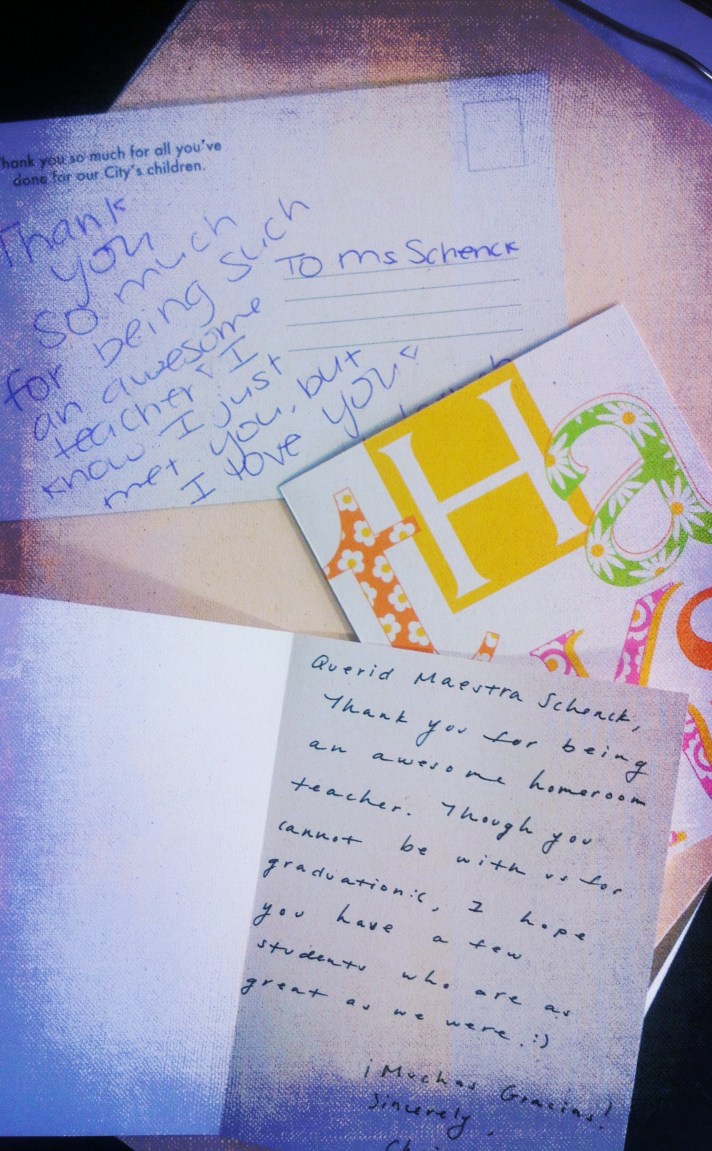 Thank you so much for all you've
done for our City's children.
Thank
you
so much
for being such
an awesome
teacher "I
know I just
met you, but
I love you"
To Ms Schenck
Ha
t
Querid Maestra Schenck,
Thank you for being
an awesome homeroom
teacher. Though you
cannot be with us for
graduation:(, I hope
you have a few
students who are as
great as we were. :)
¡Muchas Gracias!
Sincerely,